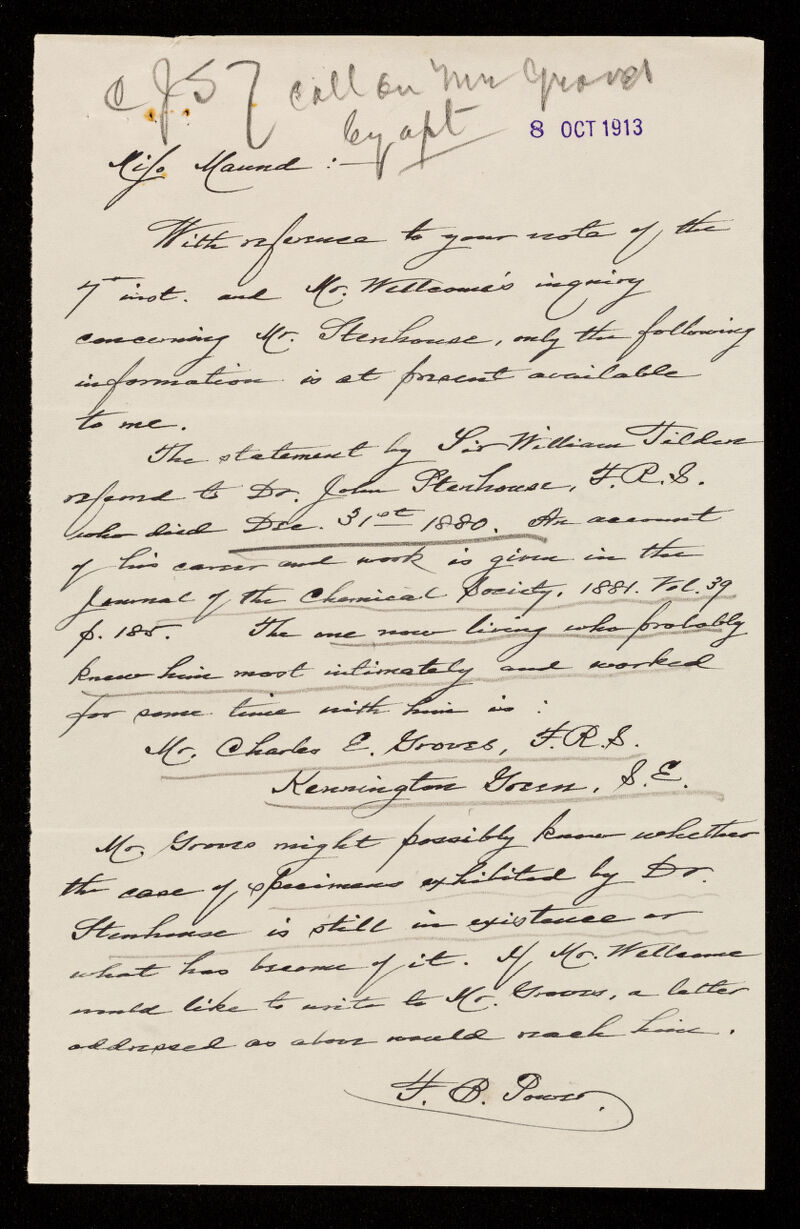 CJST call on Mr Groves
by apt
8 OCT 1913
Miss Maund :—
With reference to your note of the
7th inst. and Mr. Wellcome's inquiry
concerning Mr. Stenhouse, only the following
information is at present available
to me.
The statement by Sir William Tilden
referred to Dr. John Stenhouse, F.R.S.
who died Dec. 31st 1880. An account
of his career and work is given in the
Journal of the Chemical Society, 1881. Vol. 39
p. 185. The one now living who probably
knew him most intimately and worked
for some time with him is :
Mr. Charles E. Groves, F.R.S.
Kennington Green, S.E.
Mr. Groves might possibly know whether
the case of specimens exhibited by Dr.
Stenhouse is still in existence or
what has become of it. If Mr. Wellcome
would like to write to Mr. Groves, a letter
addressed as above would reach him.
F. B. Power.